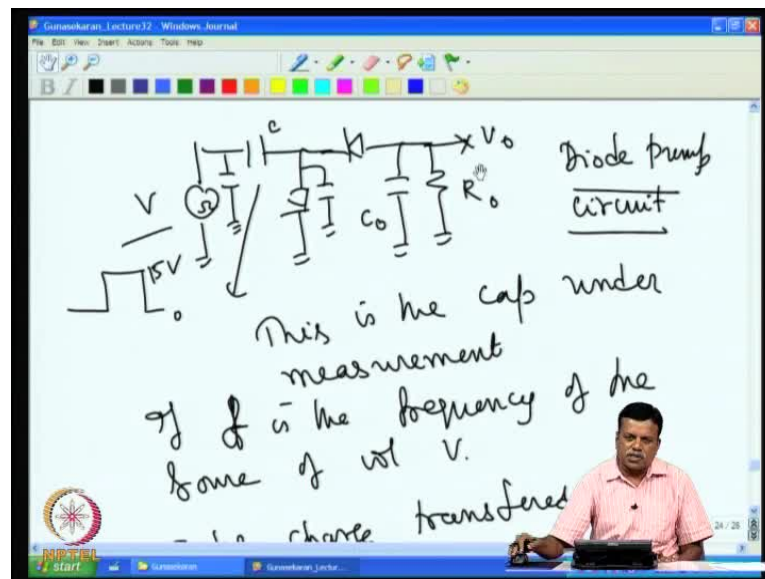 Gunasekaran_Lecture32 - Windows Journal
File Edit View Insert Actions Tools Help
B I
C
V
15V
0
C0
R0
V0
Diode Pump
circuit
This is the cap under
measurement
If f is the frequency of the
Some of vol V.
charge transfered
24 / 26
NPTEL
start
Gunasekaran
Gunasekaran_Lectur...